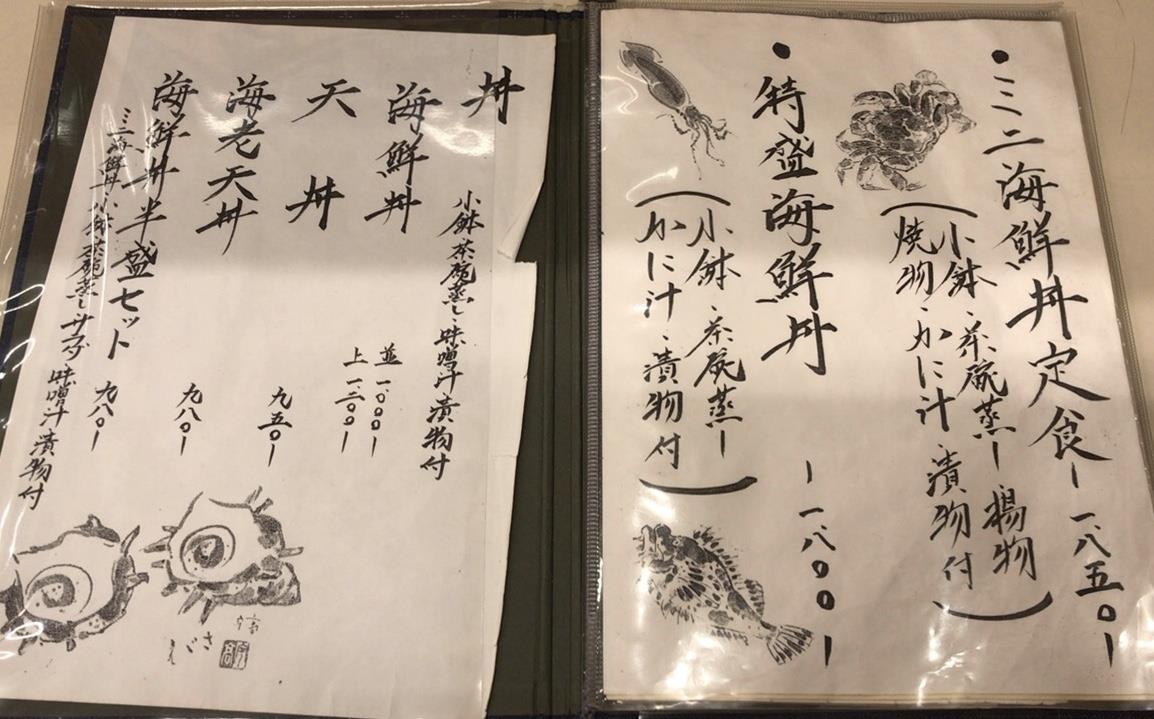 ・ミニ海鮮丼定食ー一八五〇ー
(小鉢、茶碗蒸し、揚物
焼物、かに汁、漬物付)
・特盛海鮮丼ー一八〇〇ー
(小鉢、茶碗蒸し
かに汁、漬物付)
丼
小鉢、茶碗蒸し、味噌汁、漬物付
海鮮丼
並一〇〇〇ー
上一三〇〇ー
天丼
九五〇ー
海老天丼
九八〇ー
海鮮丼半盛セット
九八〇ー
ミニ海鮮丼、小鉢、茶碗蒸し、サラダ、味噌汁、漬物付
さざえ